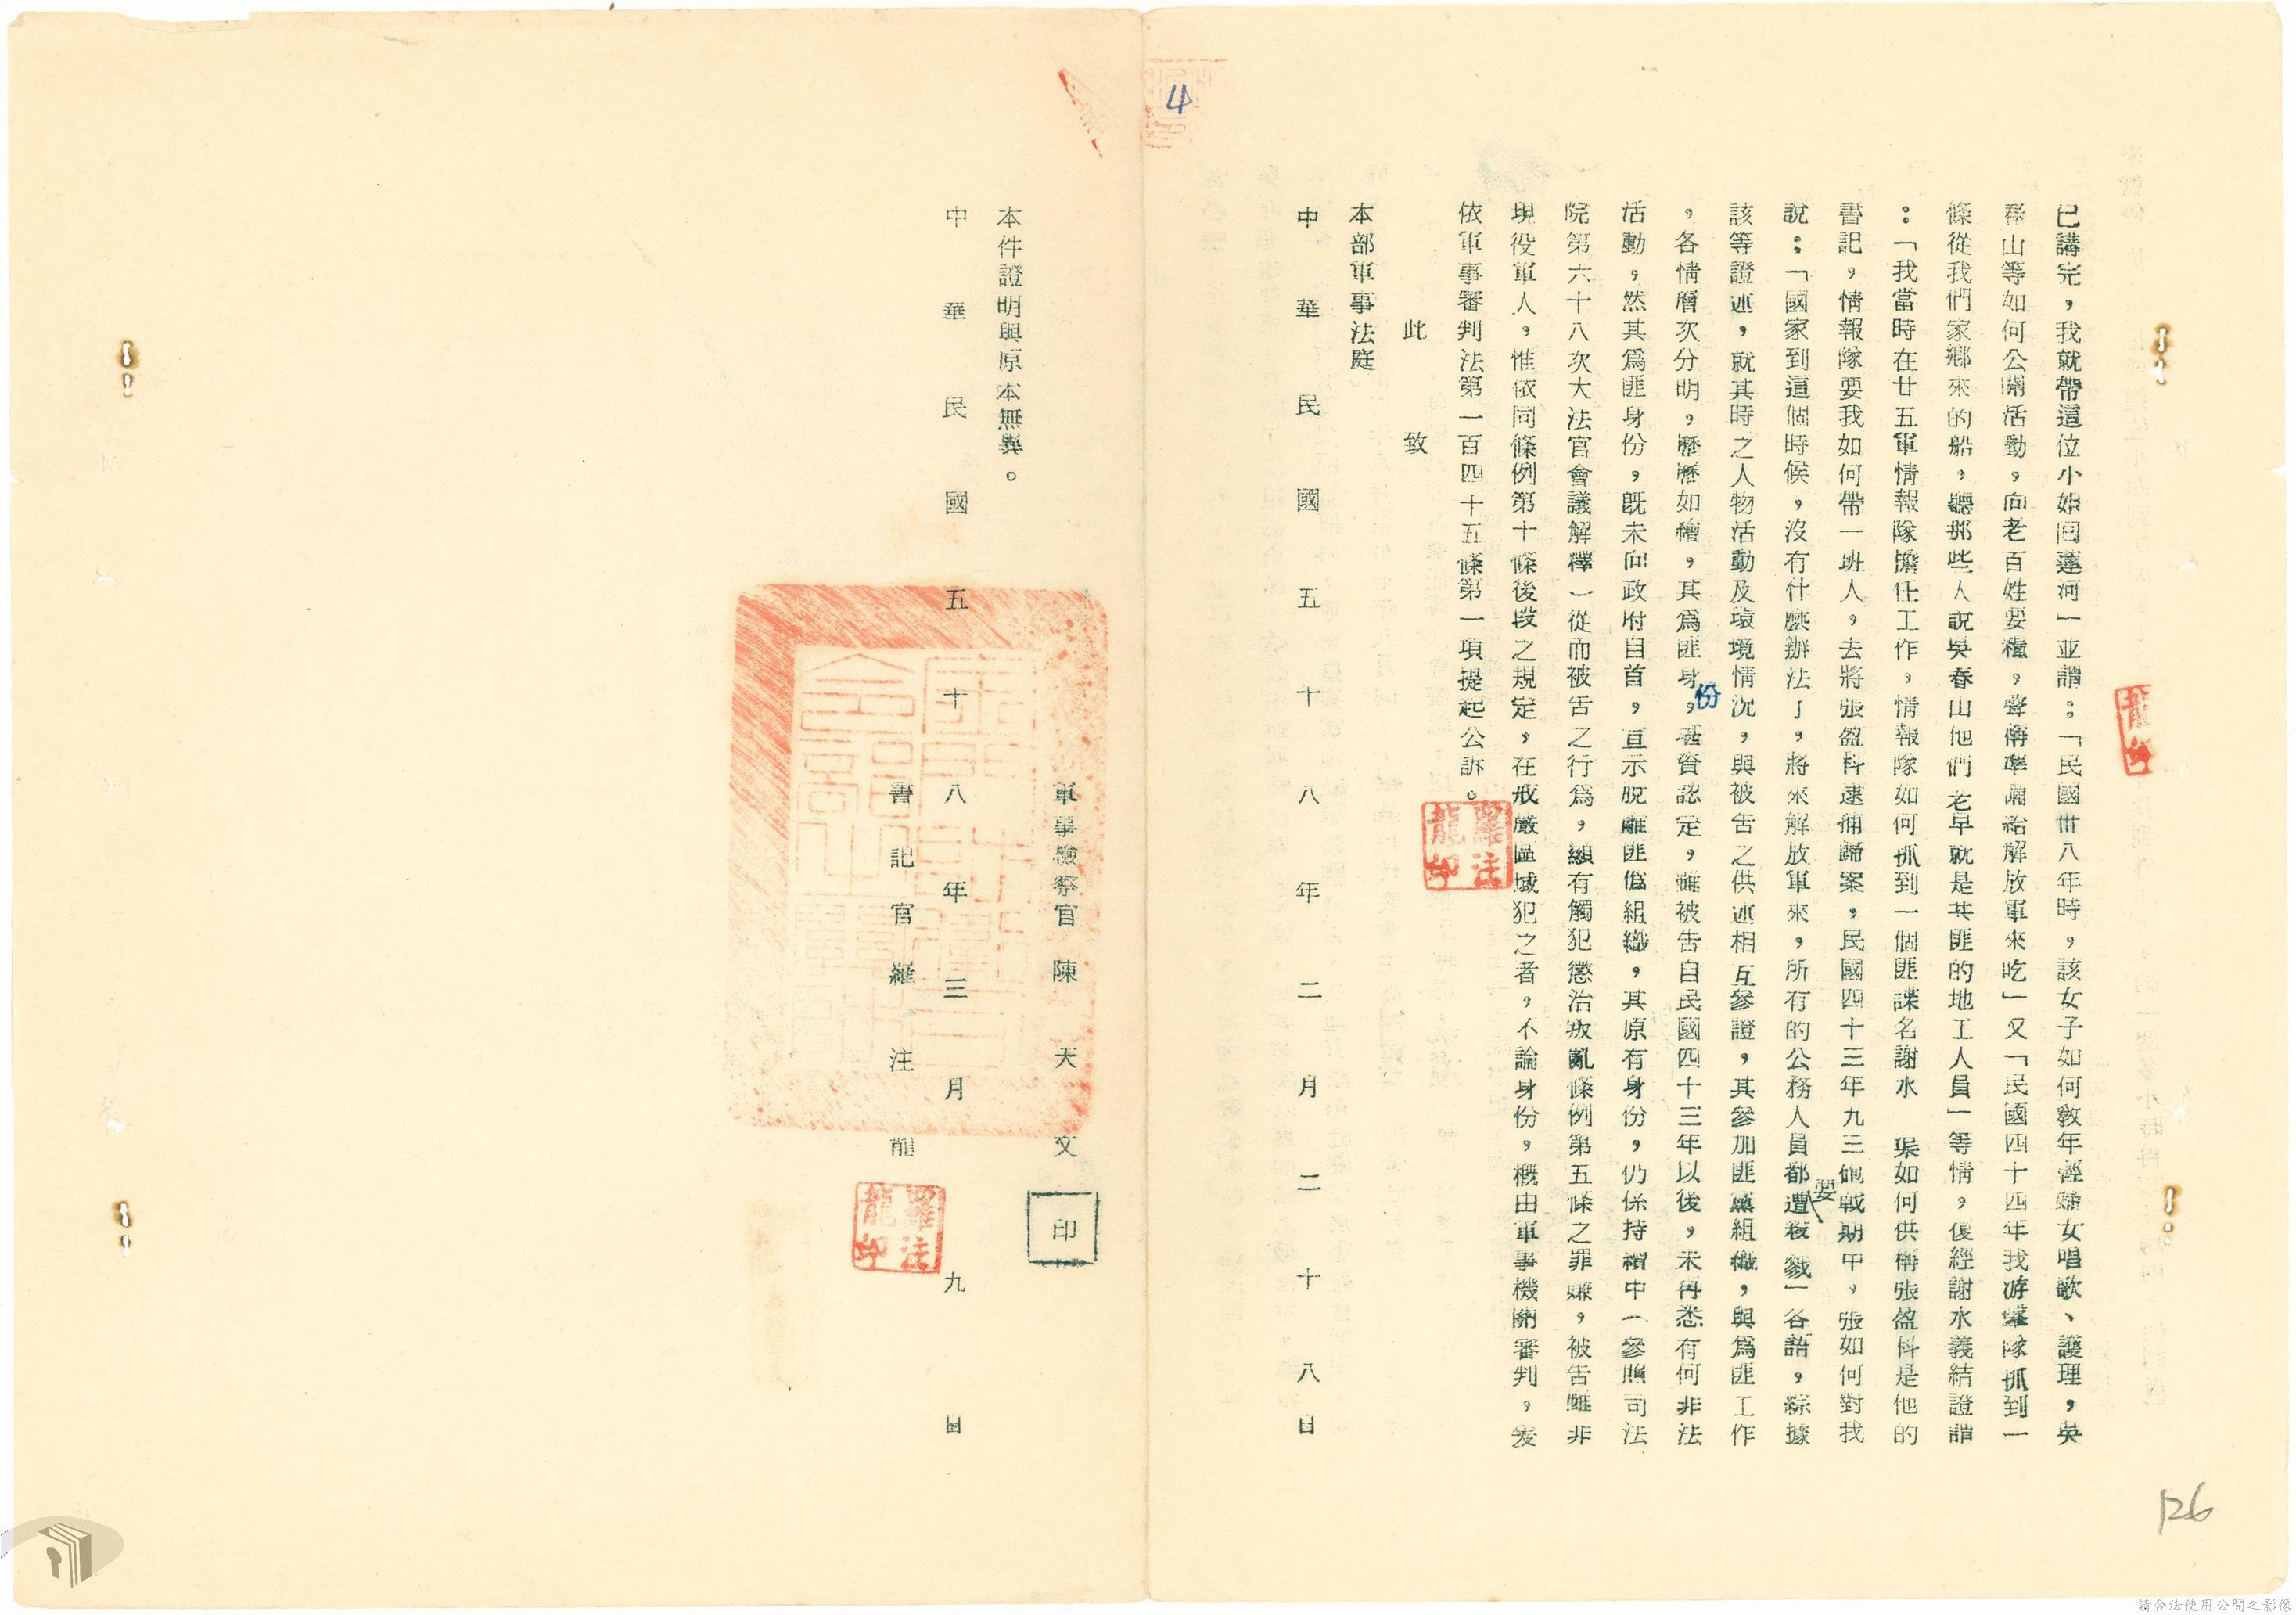 4
已講完，我就帶這位小姐回蓮河」並謂：「民國卅八年時，該女子如何教年輕婦女唱歌、護理，吳
春山等如何公開活動，向老百姓要糧，聲稱準備給解放軍來吃」又「民國四十四年我游擊隊抓到一
條從我們家鄉來的船，聽那些人說吳春山他們老早就是共匪的地工人員」等情，復經謝水義結證謂
：「我當時在廿五軍情報隊擔任工作，情報隊如何抓到一個匪諜名謝水 渠如何供稱張盈科是他的
書記，情報隊要我如何帶一班人，去將張盈科逮捕歸案，民國四十三年九三砲戰期中，張如何對我
說：「國家到這個時候，沒有什麼辦法了，將來解放軍來，所有的公務人員都要遭殺戮」各語，綜據
該等證述，就其時之人物活動及環境情況，與被告之供述相互參證，其參加匪黨組織，與為匪工作
，各情層次分明，歷歷如繪，其為匪身份，甚資認定，惟被告自民國四十三年以後，未再悉有何非法
活動，然其為匪身份，既未向政府自首，亘示脫離匪偽組織，其原有身份，仍係持續中（參照司法
院第六十八次大法官會議解釋）從而被告之行為，顯有觸犯懲治叛亂條例第五條之罪嫌，被告雖非
現役軍人，惟依同條例第十條後段之規定，在戒嚴區域犯之者，不論身份，概由軍事機關審判，爰
依軍事審判法第一百四十五條第一項提起公訴。
此 致
本部軍事法庭
中華民國五十八年二月二十八日
羅注龍印
軍事檢察官 陳天文 印
本件證明與原本無異。
中華民國五十八年三月九日
書記官 羅注龍
羅注龍印
126
請合法使用公開之影像